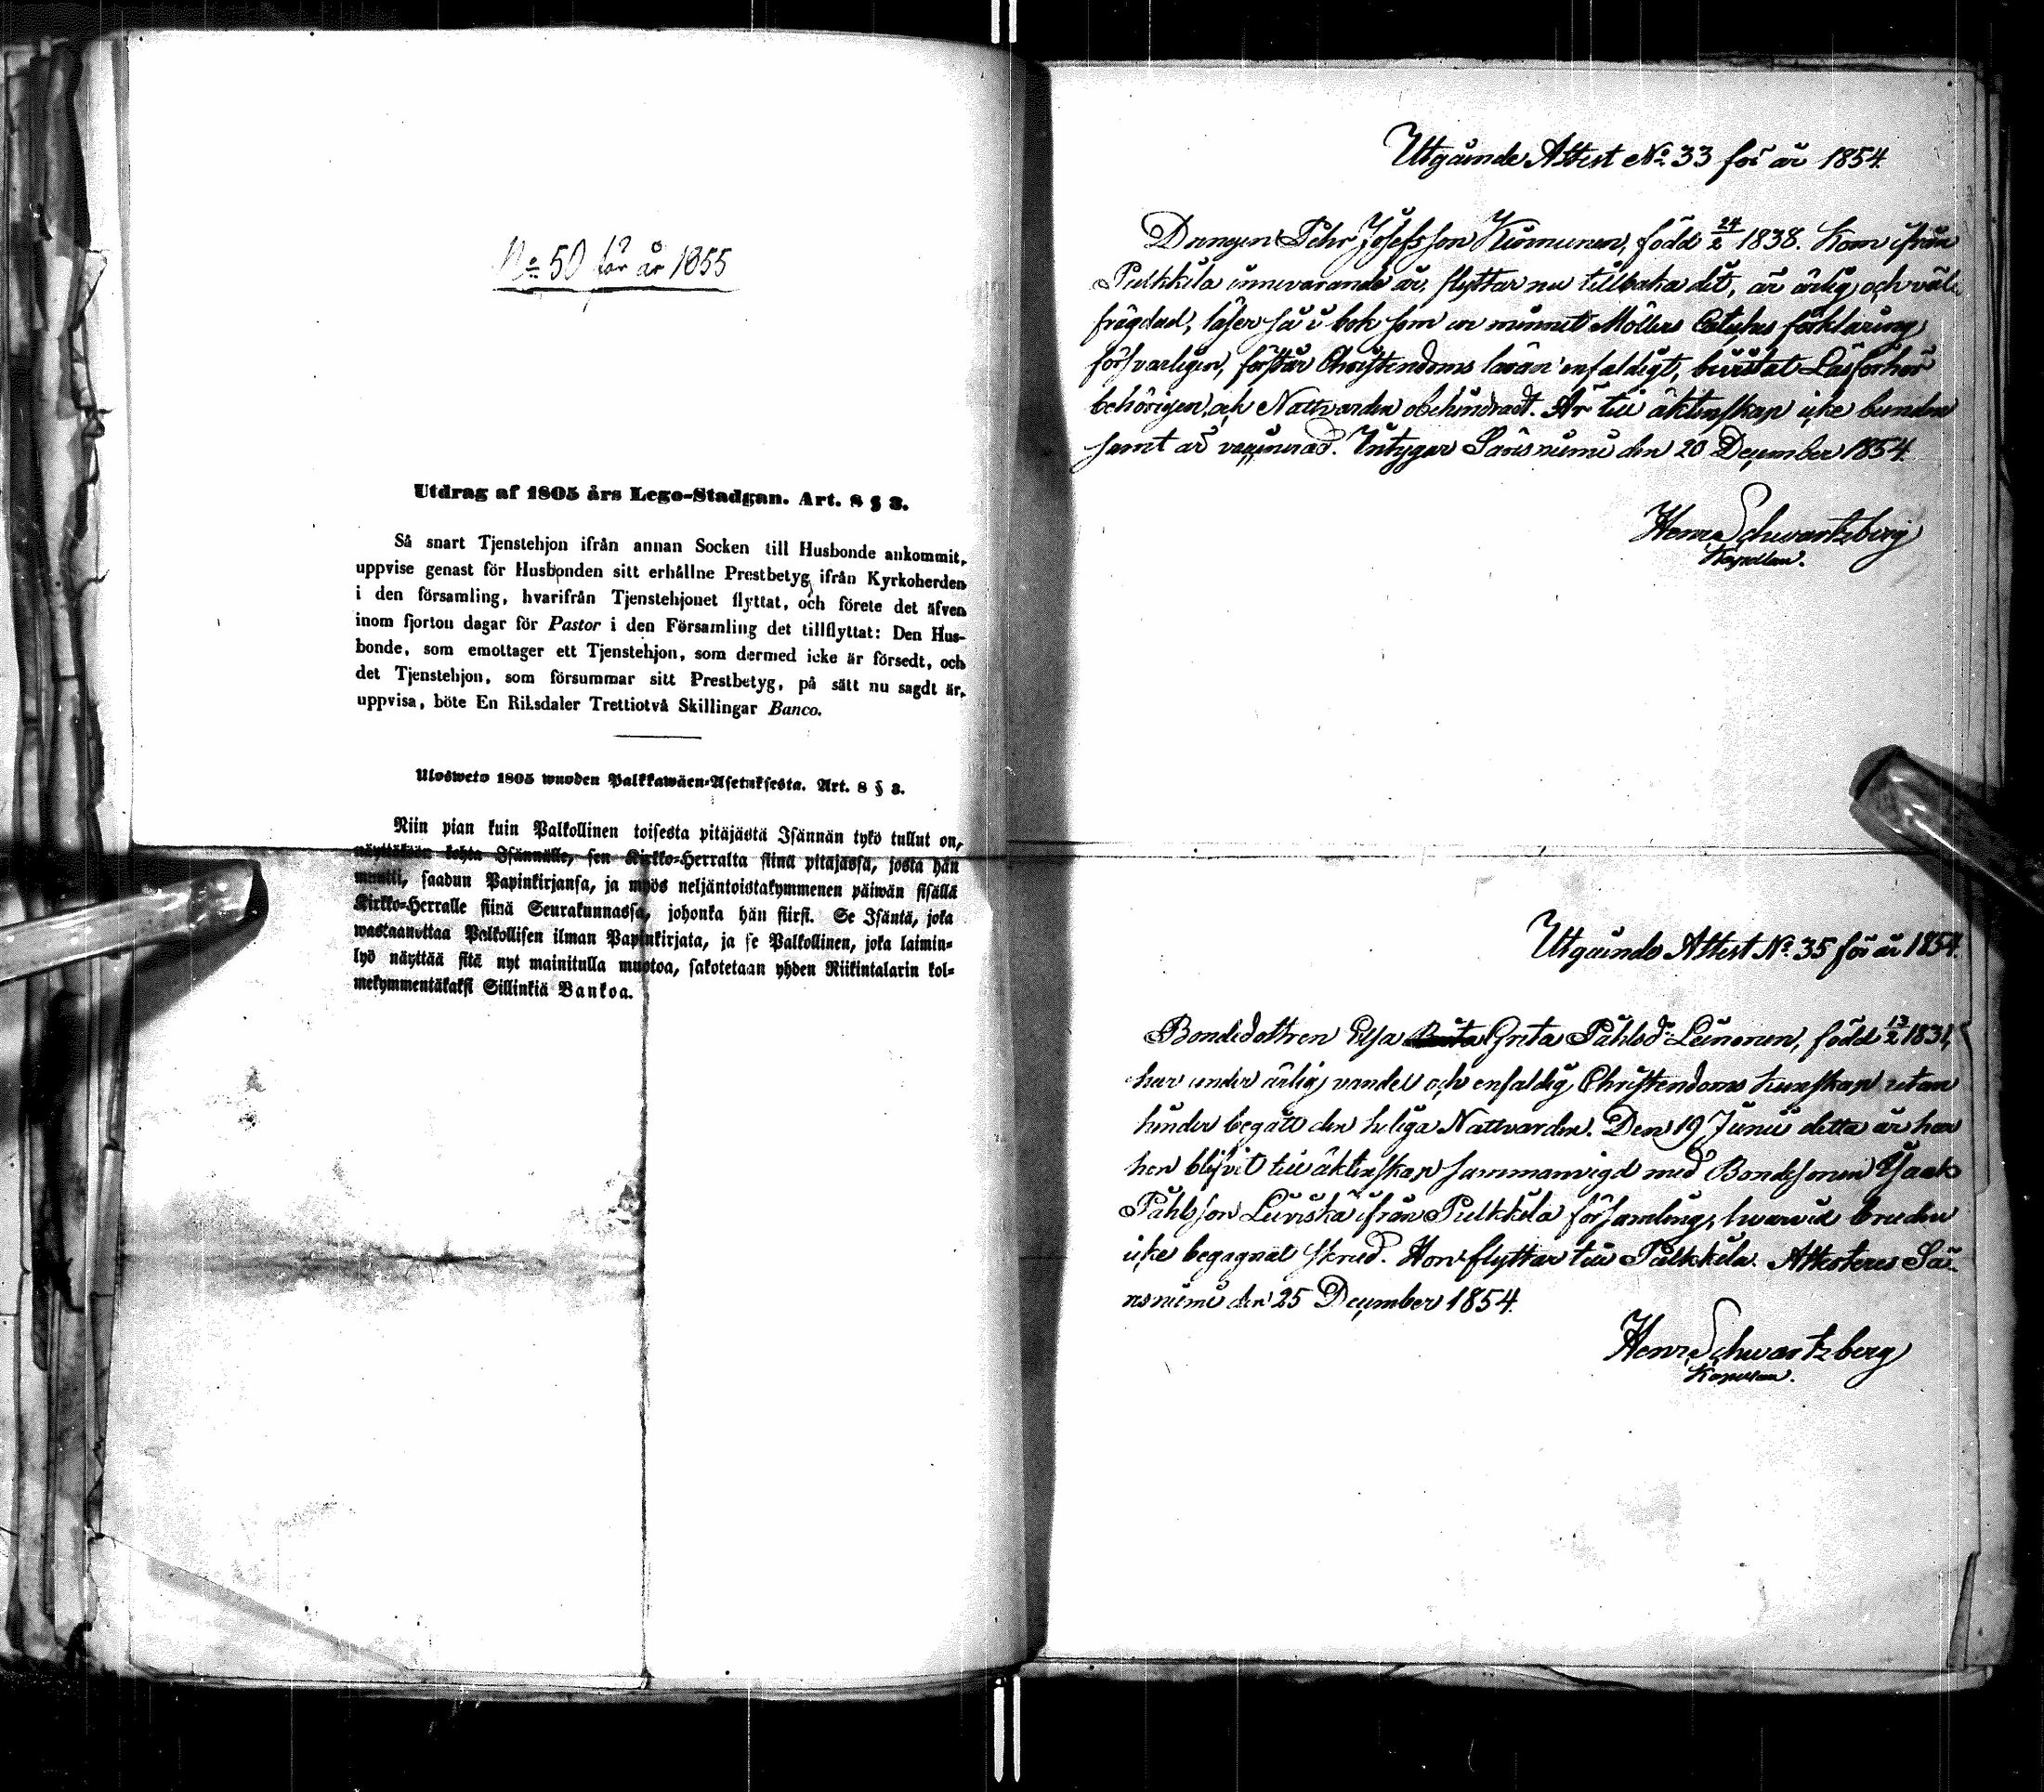 No 50 för år 1855
Utdrag af 1805 års Lego-Stadgan. Art. 8 § 3.
Så snart Tjenstehjon ifrån annan Socken till Husbonde ankommit,
uppvise genast för Husbonden sitt erhållne Prestbetyg ifrån Kyrkoherden
i den församling, hvarifrån Tjenstehjonet flyttat, och förete det äfven
inom fjorton dagar för Pastor i den Församling det tillflyttat: Den Hus-
bonde, som emottager ett Tjenstehjon, som dermed icke är försedt, och
det Tjenstehjon, som försummar sitt Prestbetyg, på sätt nu sagdt är,
uppvisa, böte En Riksdaler Trettiotvå Skillingar Banco.
Ulosweto 1805 wuoden Palkkawäen-Asetuksesta. Art. 8 § 3.
Niin pian kuin Palkollinen toisesta pitäjästä Isännän tykö tullut on,
näyttäköön kohta Isännälle, sen Kirkko-Herralta siinä pitäjässä, josta hän
muutti, saadun Papinkirjansa, ja myös neljäntoistakymmenen päiwän sisällä
Kirkko-Herralle siinä Seurakunnassa, johonka hän siirsi. Se Isäntä, joka
wastaanottaa Palkollisen ilman Papinkirjata, ja se Palkollinen, joka laimin-
lyö näyttää sitä nyt mainitulla muotoa, sakotetaan yhden Riikintalarin kol-
mekymmentäkaksi Sillinkiä Bankoa.
Utgående Attest No 33 för år 1854.
Drengen Pehr Josefsson Kinnunen, född 24/2 1838. Kom ifrån
Pulkkila innevarande år, flyttar nu tillbaka dit, är ärlig och väl
frägdad, läser så i bok som ur minnet Möllers Cateches förklaring
försvarligen, förstår Christendoms läran enfaldigt, bivistat Läsförhör
behörigen, och Nattvarden obehindradt. Är till äktenskap icke bunden
samt är vaccinerad. Intygar Säräisniemi den 20 December 1854.
Henr Schwartzberg
Kapellan.
Utgående Attest No 35 för år 1854.
Bondedottren Elsa Greta Påhlsdr Leinonen, född 13/2 1831,
har under ärlig vandel och enfaldig Christendoms kunskap utan
hinder begått den heliga Nattvarden. Den 19 Junii detta år har
hon blifvit till äktenskap sammanvigd med Bondesonen Isaak
Påhlsson Leiviskä ifrån Pulkkila församling, hvarvid bruden
icke begagnat skrud. Hon flyttar till Pulkkila. Attesteras Sä-
räisniemi den 25 December 1854.
Henr Schwartzberg
Kapellan.